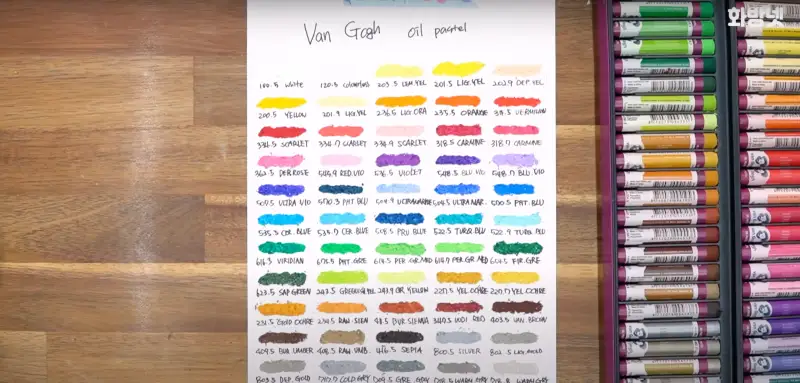 화방넷
Van Gogh oil pastel
100.5 white 120.5 colorless 205.5 LEM.YEL 201.5 LIG.YEL 202.9 DEP.YEL
200.5 YELLOW 201.9 LIG.YEL 236.5 LIG.ORA 235.5 ORANGE 311.5 VERMILION
334.5 SCARLET 334.7 SCARLET 334.9 SCARLET 318.5 CARMINE 318.7 CARMINE
362.5 DEP.ROSE 545.9 RED.VIO 536.5 VIOLET 548.5 BLU.VIO 548.7 BLU.VIO
505.5 ULTRA VIO 570.3 PHT.BLU 504.9 ULTRAMARINE 504.5 ULTRA MAR. 570.5 PHT.BLU
535.3 CER.BLUE 535.7 CER.BLUE 508.5 PRU.BLUE 522.5 TURQ.BLU 522.9 TURQ.BLU
616.3 VIRIDIAN 675.5 PHT.GRE 614.5 PER.GR.MED 614.7 PER.GR.MED 654.5 FIR.GRE
623.5 SAP GREEN 243.5 GREENISH YEL 243.9 GR.YELLOW 227.5 YEL OCHRE 227.7 YEL OCHRE
231.5 GOLD OCHRE 234.5 RAW.SIEN 411.5 BUR.SIENNA 347.5 INDI RED 403.5 VAN.BROWN
409.5 BUR UMBER 408.5 RAW UMB. 416.5 SEPIA 800.5 SILVER 802.5 LIG.GOLD
803.5 DEP.GOLD COLD GREY 709.5 GRE.GREY 718.5 WARM GREY WARM GREY